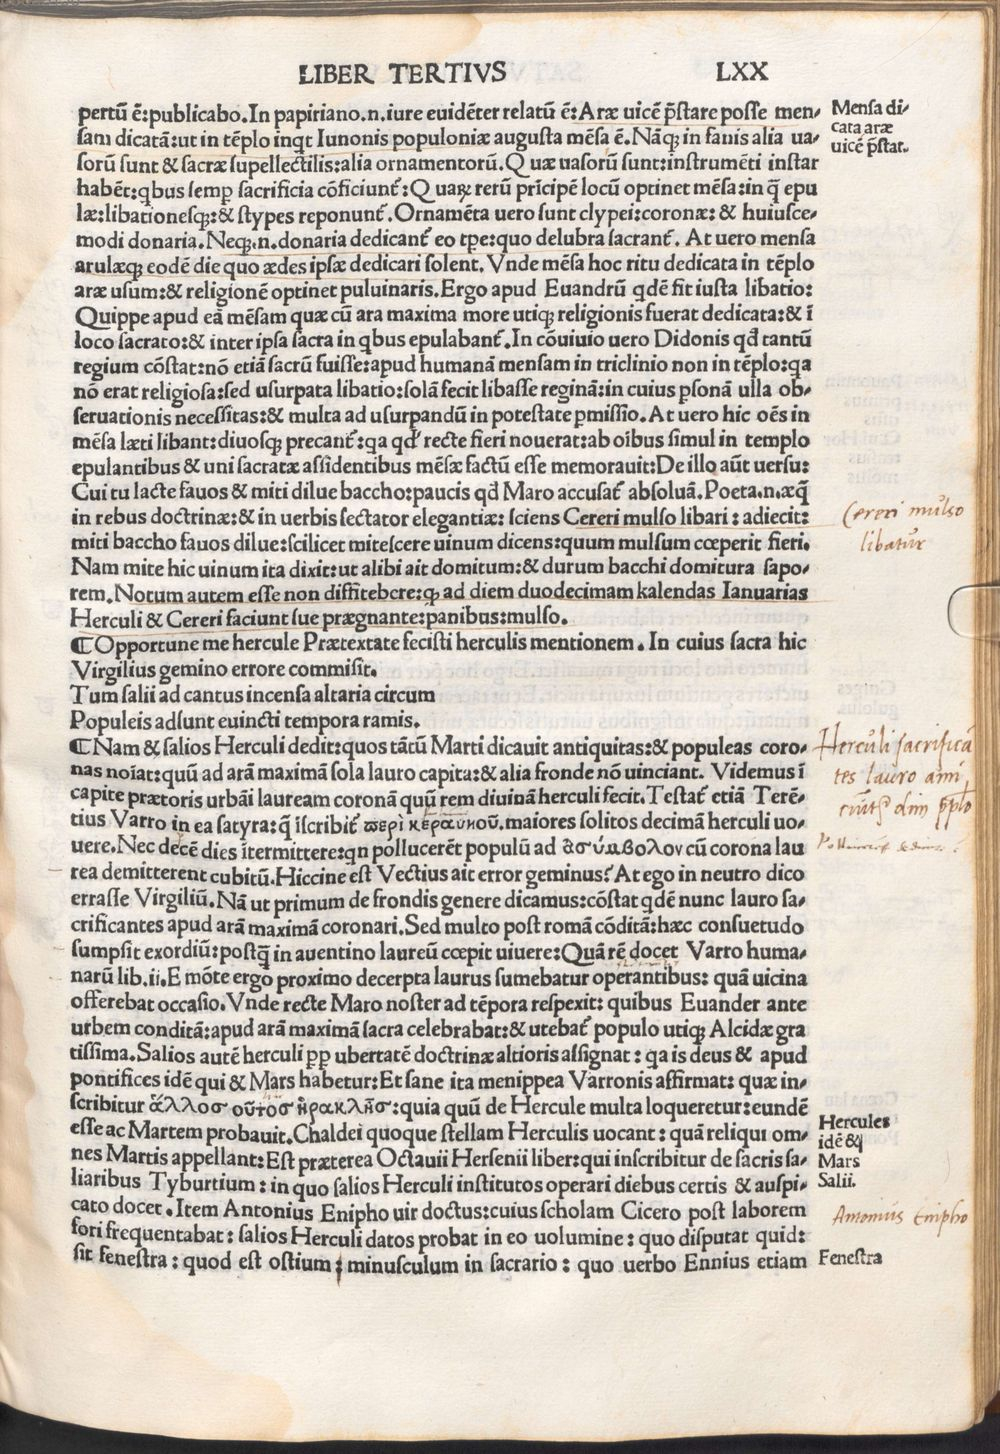 LIBER TERTIVS
LXX
pertū ē:publicabo.In papiriano.n.iure euidēter relatū ē:Aræ uicē p̄stare posse men-
sam dicatā:ut in tēplo inqt Iunonis populoniæ augusta mēsa ē.Nāq; in fanis alia ua-
sorū sunt & sacræ supellectilis:alia ornamentorū.Quæ uasorū sunt:instrumēti instar
habēt:qbus semp sacrificia cōficiunt:Quaꝝ rerū prīcipē locū optinet mēsa:in q̄ epu
læ:libationesq;:& stypes reponunt.Ornamēta uero sunt clypei:coronæ:& huiusce-
modi donaria.Neq;.n.donaria dedicant eo tpe:quo delubra sacrant. At uero mensa
arulæq; eodē die quo ædes ipsæ dedicari solent.Vnde mēsa hoc ritu dedicata in tēplo
aræ usum:& religionē optinet puluinaris.Ergo apud Euandrū qdē fit iusta libatio:
Quippe apud eā mēsam quæ cū ara maxima more utiq; religionis fuerat dedicata:& ī
loco sacrato:& inter ipsa sacra in qbus epulabant.In cōuiuio uero Didonis qd tantū
regium cōstat:nō etiā sacrū fuisse:apud humanā mensam in triclinio non in tēplo:qa
nō erat religiosa:sed usurpata libatio:solā fecit libasse reginā:in cuius psonā ulla ob-
seruationis necessitas:& multa ad usurpandū in potestate pmissio.At uero hic oēs in
mēsa læti libant:diuosq; precant:qa qd recte fieri nouerat:ab oībus simul in templo
epulantibus & uni sacratæ assidentibus mēsæ factū esse memorauit:De illo aūt uersu:
Cui tu lacte fauos & miti dilue baccho:paucis qd Maro accusat absoluā.Poeta.n.æq̄
in rebus doctrinæ:& in uerbis sectator elegantiæ: sciens Cereri mulso libari : adiecit:
miti baccho fauos dilue:scilicet mitescere uinum dicens:quum mulsum cœperit fieri.
Nam mite hic uinum ita dixit:ut alibi ait domitum:& durum bacchi domitura sapo-
rem.Notum autem esse non diffitebere:q; ad diem duodecimam kalendas Ianuarias
Herculi & Cereri faciunt sue prægnante:panibus:mulso.
¶Opportune me hercule Prætextate fecisti herculis mentionem. In cuius sacra hic
Virgilius gemino errore commisit.
Tum salii ad cantus incensa altaria circum
Populeis adsunt euincti tempora ramis.
¶Nam & salios Herculi dedit:quos tātū Marti dicauit antiquitas:& populeas coro-
nas noīat:quū ad arā maximā sola lauro capita:& alia fronde nō uinciant. Videmus ī
capite prætoris urbāi lauream coronā quū rem diuinā herculi fecit.Testat etiā Terē-
tius Varro in ea satyra:q̄ īscribit περὶ κεραυνοῦ.maiores solitos decimā herculi uo-
uere.Nec decē dies ītermittere:qn pollucerēt populū ad ἀσύμβολον cū corona lau
rea demitterent cubitū.Hiccine est Vectius ait error geminus? At ego in neutro dico
errasse Virgiliū.Nā ut primum de frondis genere dicamus:cōstat qdē nunc lauro sa-
crificantes apud arā maximā coronari.Sed multo post romā cōditā:hæc consuetudo
sumpsit exordiū:postq̄ in auentino laureū cœpit uiuere:Quā rē docet Varro huma-
narū lib.ii.E mōte ergo proximo decerpta laurus sumebatur operantibus: quā uicina
offerebat occasio.Vnde recte Maro noster ad tēpora respexit: quibus Euander ante
urbem conditā:apud arā maximā sacra celebrabat:& utebat populo utiq; Alcidæ gra
tissima.Salios autē herculi pp ubertatē doctrinæ altioris assignat : qa is deus & apud
pontifices idē qui & Mars habetur:Et sane ita menippea Varronis affirmat: quæ in-
scribitur ἄλλοσ οὗτοσ ἡρακλῆσ:quia quū de Hercule multa loqueretur:eundē
esse ac Martem probauit.Chaldei quoque stellam Herculis uocant : quā reliqui om-
nes Martis appellant:Est præterea Octauii Hersenii liber:qui inscribitur de sacris sa-
liaribus Tyburtium : in quo salios Herculi institutos operari diebus certis & auspi-
cato docet.Item Antonius Enipho uir doctus:cuius scholam Cicero post laborem
fori frequentabat : salios Herculi datos probat in eo uolumine : quo disputat quid:
sit fenestra : quod est ostium : minusculum in sacrario : quo uerbo Ennius etiam
Mensa di-
cata aræ
uicē p̄stat.
Cereri mulso
libatur
Herculi sacrificā
tes lauro
Hercules
idē &q
Mars
Salii.
Antonius Enipho
Fenestra